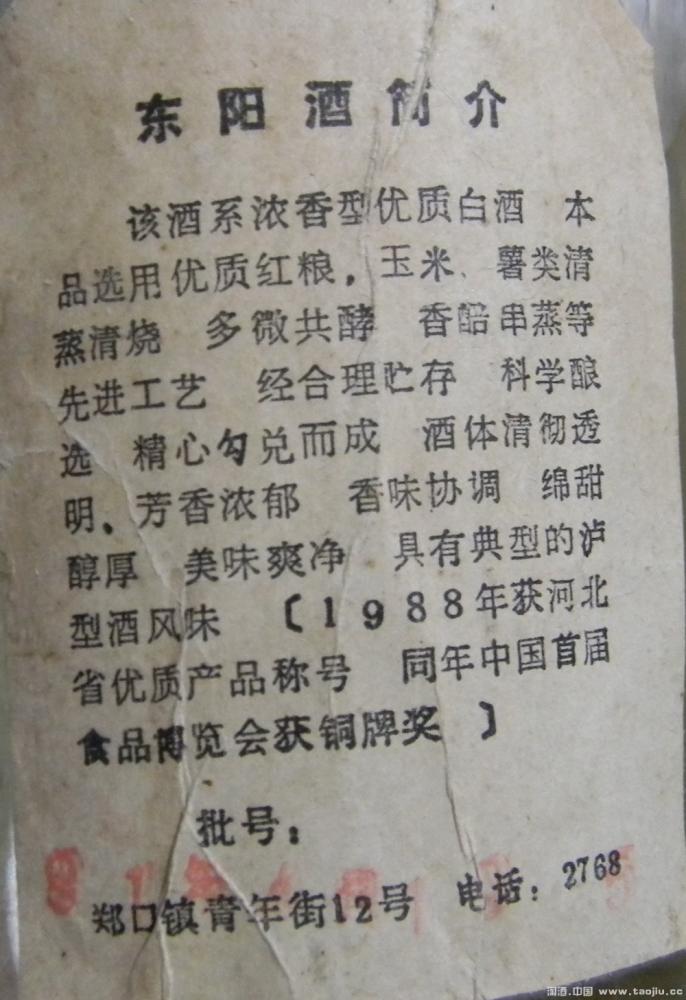 东阳酒简介
该酒系浓香型优质白酒 本
品选用优质红粮.玉米、薯类清
蒸清烧 多微共酵 香醅串蒸等
先进工艺 经合理贮存 科学酿
选 精心勾兑而成 酒体清彻透
明、芳香浓郁 香味协调 绵甜
醇厚 美味爽净 具有典型的泸
型酒风味 〔1988年获河北
省优质产品称号 同年中国首届
食品博览会获铜牌奖 〕
批号:
郑口镇青年街12号 电话:2768
淘酒.中国 www.taojiu.cc